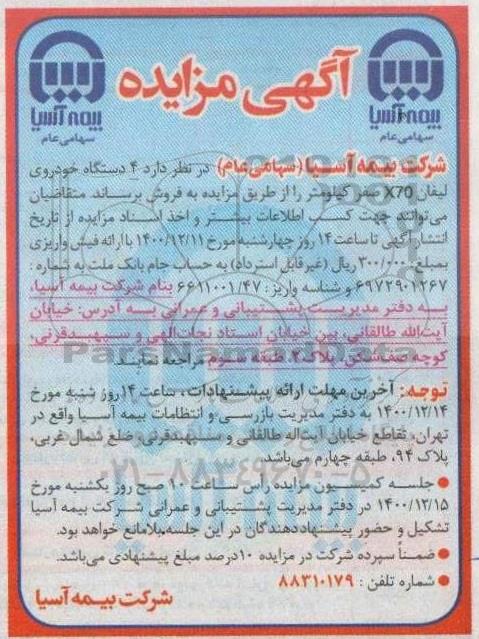 آگهی مزایده
بیمه آسیا
سهامی عام
بیمه آسیا
سهامی عام
شرکت بیمه آسیا (سهامی عام) در نظر دارد ۴ دستگاه خودروی
لیفان X70 صفر کیلومتر را از طریق مزایده به فروش برساند. متقاضیان
می‌توانند جهت کسب اطلاعات بیشتر و اخذ اسناد مزایده از تاریخ
انتشار آگهی تا ساعت ۱۴ روز چهارشنبه مورخ ۱۴۰۰/۱۲/۱۱ با ارائه فیش واریزی
بمبلغ ۳۰۰/۰۰۰ ریال (غیر قابل استرداد) به حساب جام بانک ملت به شماره :
۶۹۷۲۹۰۱۲۶۷ و شناسه واریز : ۶۶۱۱۰۰۱/۴۷ بنام شرکت بیمه آسیا،
به دفتر مدیریت پشتیبانی و عمرانی به آدرس: خیابان
آیت‌الله طالقانی، بین خیابان استاد نجات‌الهی و سپهبدقرنی،
کوچه صف‌شکن، پلاک ۲، طبقه سوم مراجعه نمایند.
توجه: آخرین مهلت ارائه پیشنهادات، ساعت ۱۴ روز شنبه مورخ
۱۴۰۰/۱۲/۱۴ به دفتر مدیریت بازرسی و انتظامات بیمه آسیا واقع در
تهران، تقاطع خیابان آیت‌اله طالقانی و سپهبدقرنی، ضلع شمال غربی،
پلاک ۹۴، طبقه چهارم می‌باشد.
● جلسه کمیسیون مزایده رأس ساعت ۱۰ صبح روز یکشنبه مورخ
۱۴۰۰/۱۲/۱۵ در دفتر مدیریت پشتیبانی و عمرانی شرکت بیمه آسیا
تشکیل و حضور پیشنهاددهندگان در این جلسه، بلامانع خواهد بود.
● ضمناً سپرده شرکت در مزایده ۱۰درصد مبلغ پیشنهادی می‌باشد.
● شماره تلفن : ۸۸۳۱۰۱۷۹
شرکت بیمه آسیا
ParsNamadData
۰۲۱-۸۸۳۴۹۶۷۰-۵